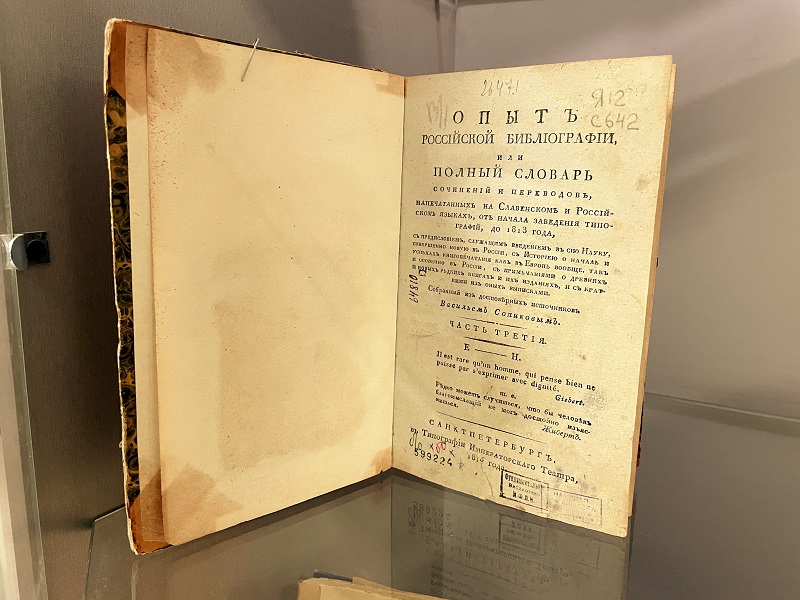 26471
Я12
С642
ОПЫТЪ
РОССІЙСКОЙ БИБЛІОГРАФІИ,
ИЛИ
ПОЛНЫЙ СЛОВАРЬ
СОЧИНЕНІЙ И ПЕРЕВОДОВЪ,
НАПЕЧАТАННЫХЪ НА СЛАВЕНСКОМЪ И РОССІЙ-
СКОМЪ ЯЗЫКАХЪ, ОТЪ НАЧАЛА ЗАВЕДЕНІЯ ТИПО-
ГРАФІЙ, ДО 1813 ГОДА,
СЪ ПРЕДИСЛОВІЕМЪ, СЛУЖАЩИМЪ ВВЕДЕНІЕМЪ ВЪ СІЮ НАУКУ,
СОВЕРШЕННО НОВУЮ ВЪ РОССІИ, СЪ ИСТОРІЕЮ О НАЧАЛѢ И
УСПѢХАХЪ КНИГОПЕЧАТАНІЯ КАКЪ ВЪ ЕВРОПѢ ВООБЩЕ, ТАКЪ
И ОСОБЕННО ВЪ РОССІИ, СЪ ПРИМѢЧАНІЯМИ О ДРЕВНИХЪ
И НОВЫХЪ РѢДКИХЪ КНИГАХЪ И ИХЪ ИЗДАНІЯХЪ, И СЪ КРАТ-
КИМИ ИЗЪ ОНЫХЪ ВЫПИСКАМИ.
Собранный изъ достовѣрныхъ источниковъ
Васильемъ Сопиковымъ.
ЧАСТЬ ТРЕТІЯ.
Е — Н.
Il est rare qu'un homme, qui pense bien ne
puisse par s'exprimer avec dignité.
Gisbert.
т. е.
Рѣдко можетъ случиться, что бы человѣкъ
благомыслящій не могъ достойно изъяс-
няться.
Жибертъ.
САНКТПЕТЕРБУРГЪ,
въ Типографіи Императорскаго Театра,
1816 года.
599224
64810